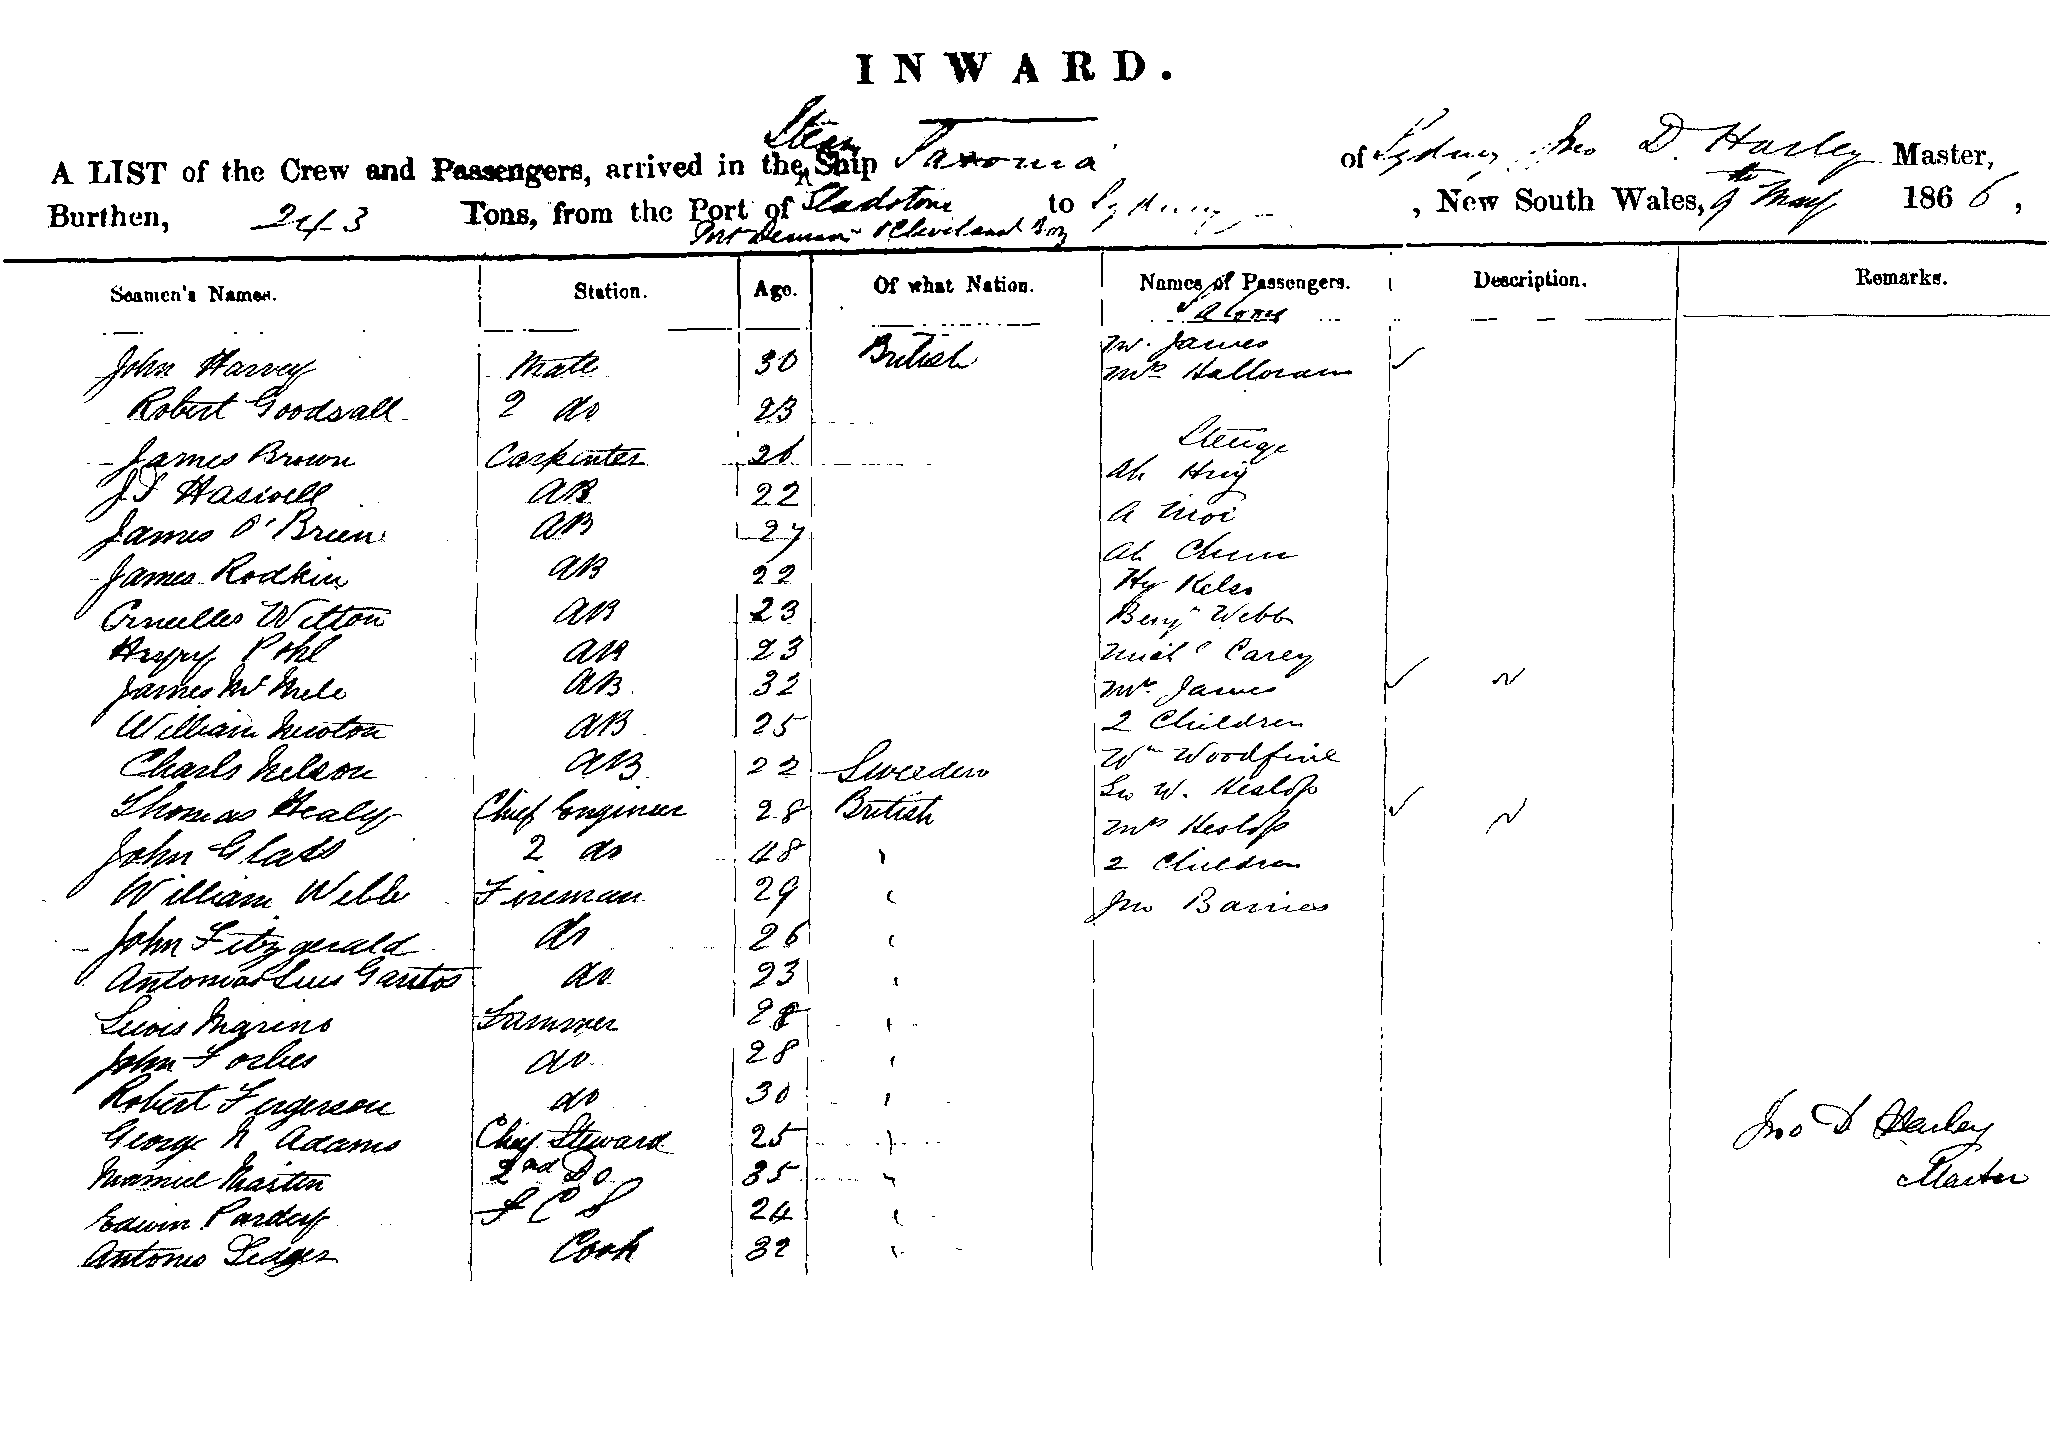 INWARD.
A LIST of the Crew and Passengers, arrived in the Steam Ship of Sydney, Jno D. Harley Master,
Burthen, 243 Tons, from the Port of Gladstone to Sydney, New South Wales, 9th May 1866,
Port Denison & Cleveland Bay
Seamen's Names. Station. Age. Of what Nation. Names of Passengers. Description. Remarks.
Saloon
John Harvey Mate 30 British Mr. James
Mrs Halloran
Robert Goodsall 2 do 23
James Brown Carpenter 26 Steerage
J Haswell AB 22 Ah
James O'Brien AB 27 A
James Rodkin AB 22 Ah
Witton AB 23 Hy Kelso
Benjn Webb
Pohl AB 23 Michl Carey
James Mc AB 32 James
William Newton AB 25 2 Children
Charls Nelson AB 22 Sweeden Wm Woodfine
Thomas Healy Chief Engineer 28 British Geo W. Heslop
Mrs Heslop
John Glass 2 do 48 2 Children
William Webb Fireman 29 Jno Barnes
John Fitzgerald do 26
Antonio Luis do 23
Lewis Marino Trimmer 28
John Forbes do 28
Robert Fergerson do 30
George N Adams Chief Steward 25
Martin 2nd Do 35
Edwin Pardey 24
Antonio Cook 32
Jno D Harley
Master